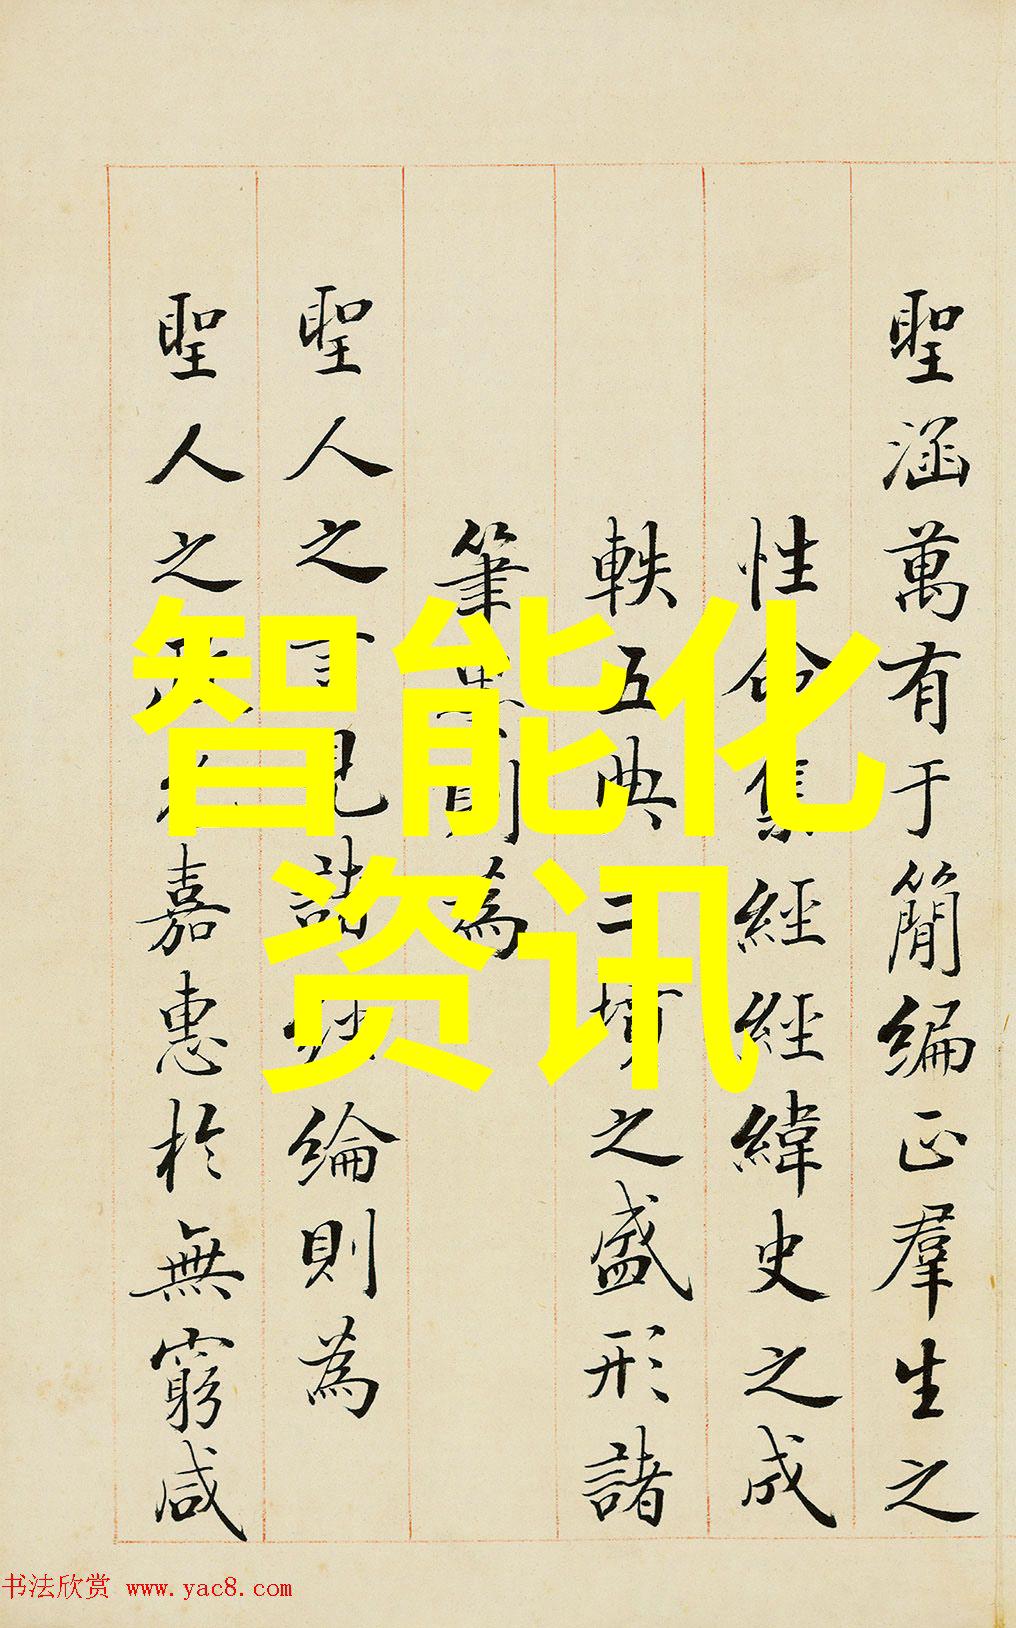 聖涵萬有于簡編正羣生之
性命集經經緯史之成
軼五典三墳之盛形諸
筆則為
聖人之言見諸綸則為
聖人之嘉惠於無窮咸
智能化
资讯
书法欣赏 www.yac8.com